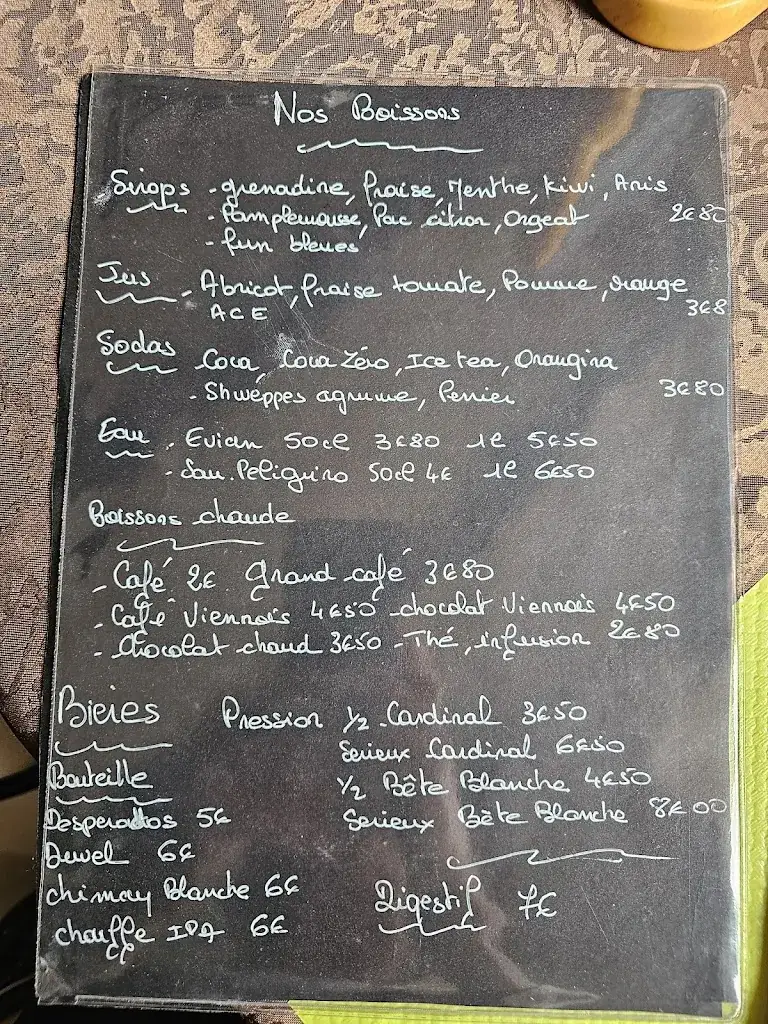 Nos Boissons
Sirops - grenadine, fraise, Menthe, kiwi, Anis
- Pamplemousse, Pac citron, Orgeat 2€80
- fun bleues
Jus - Abricot, fraise tomate, Pomme, orange
ACE 3€8
Sodas Coca, Coca Zéro, Ice tea, Orangina
- Shweppes agrume, Perrier 3€80
Eau - Evian 50cl 3€80 1l 5€50
- San. Peligrino 50cl 4€ 1l 6€50
Boissons chaude
- Café 2€ Grand café 3€80
- Café Viennois 4€50 - chocolat Viennois 4€50
- Chocolat chaud 3€50 - Thé, infusion 2€80
Bieres Pression 1/2 Cardinal 3€50
Serieux Cardinal 6€50
Bouteille 1/2 Bête Blanche 4€50
Desperados 5€ Serieux Bête Blanche 8€00
Duvel 6€
chimay Blanche 6€ Digestif 7€
chouffe IPA 6€